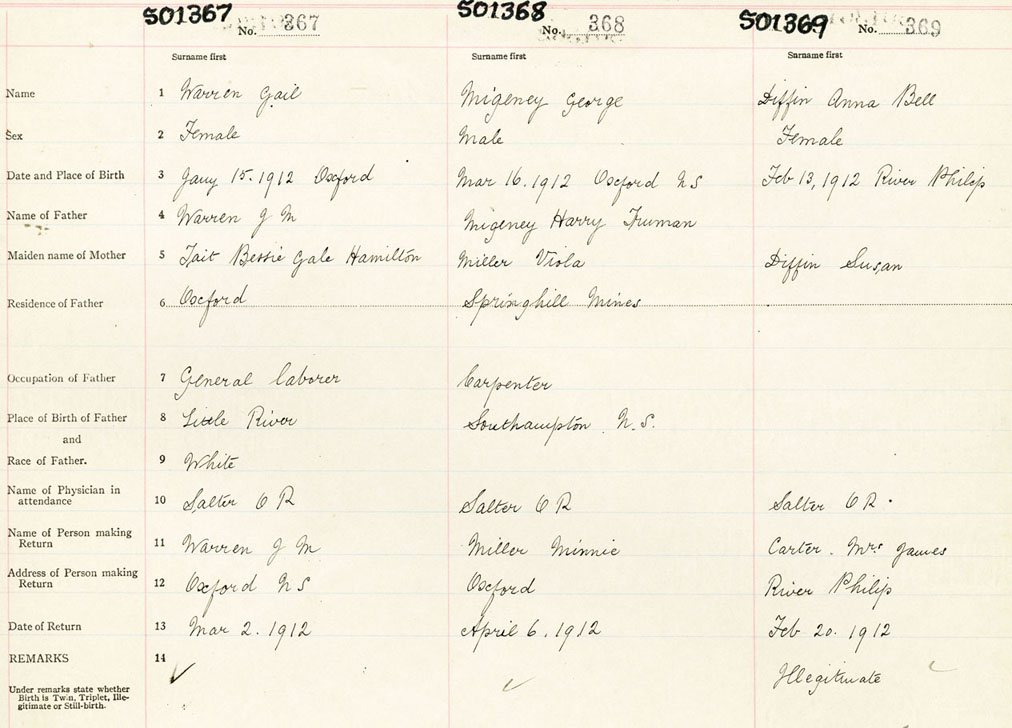 501367 501368 501369
No. 367 No. 368 No. 369
Surname first Surname first Surname first
Name 1 Warren Gail Migeney George Diffin Anna Bell
Sex 2 Female Male Female
Date and Place of Birth 3 Jany 15. 1912 Oxford Mar 16. 1912 Oxford N S Feb 13, 1912 River Philip
Name of Father 4 Warren J M Migeney Harry Truman
Maiden name of Mother 5 Tait Bessie Gale Hamilton Miller Viola Diffin Susan
Residence of Father 6 Oxford Springhill Mines
Occupation of Father 7 General laborer Carpenter
Place of Birth of Father 8 Little River Southampton N.S.
and
Race of Father. 9 White
Name of Physician in
attendance 10 Salter O R Salter O R Salter O R.
Name of Person making
Return 11 Warren J M Miller Minnie Carter. Mrs James
Address of Person making
Return 12 Oxford N S Oxford River Philip
Date of Return 13 Mar 2. 1912 April 6. 1912 Feb 20. 1912
REMARKS 14
Illegitimate
Under remarks state whether
Birth is Twin, Triplet, Ille-
gitimate or Still-birth.